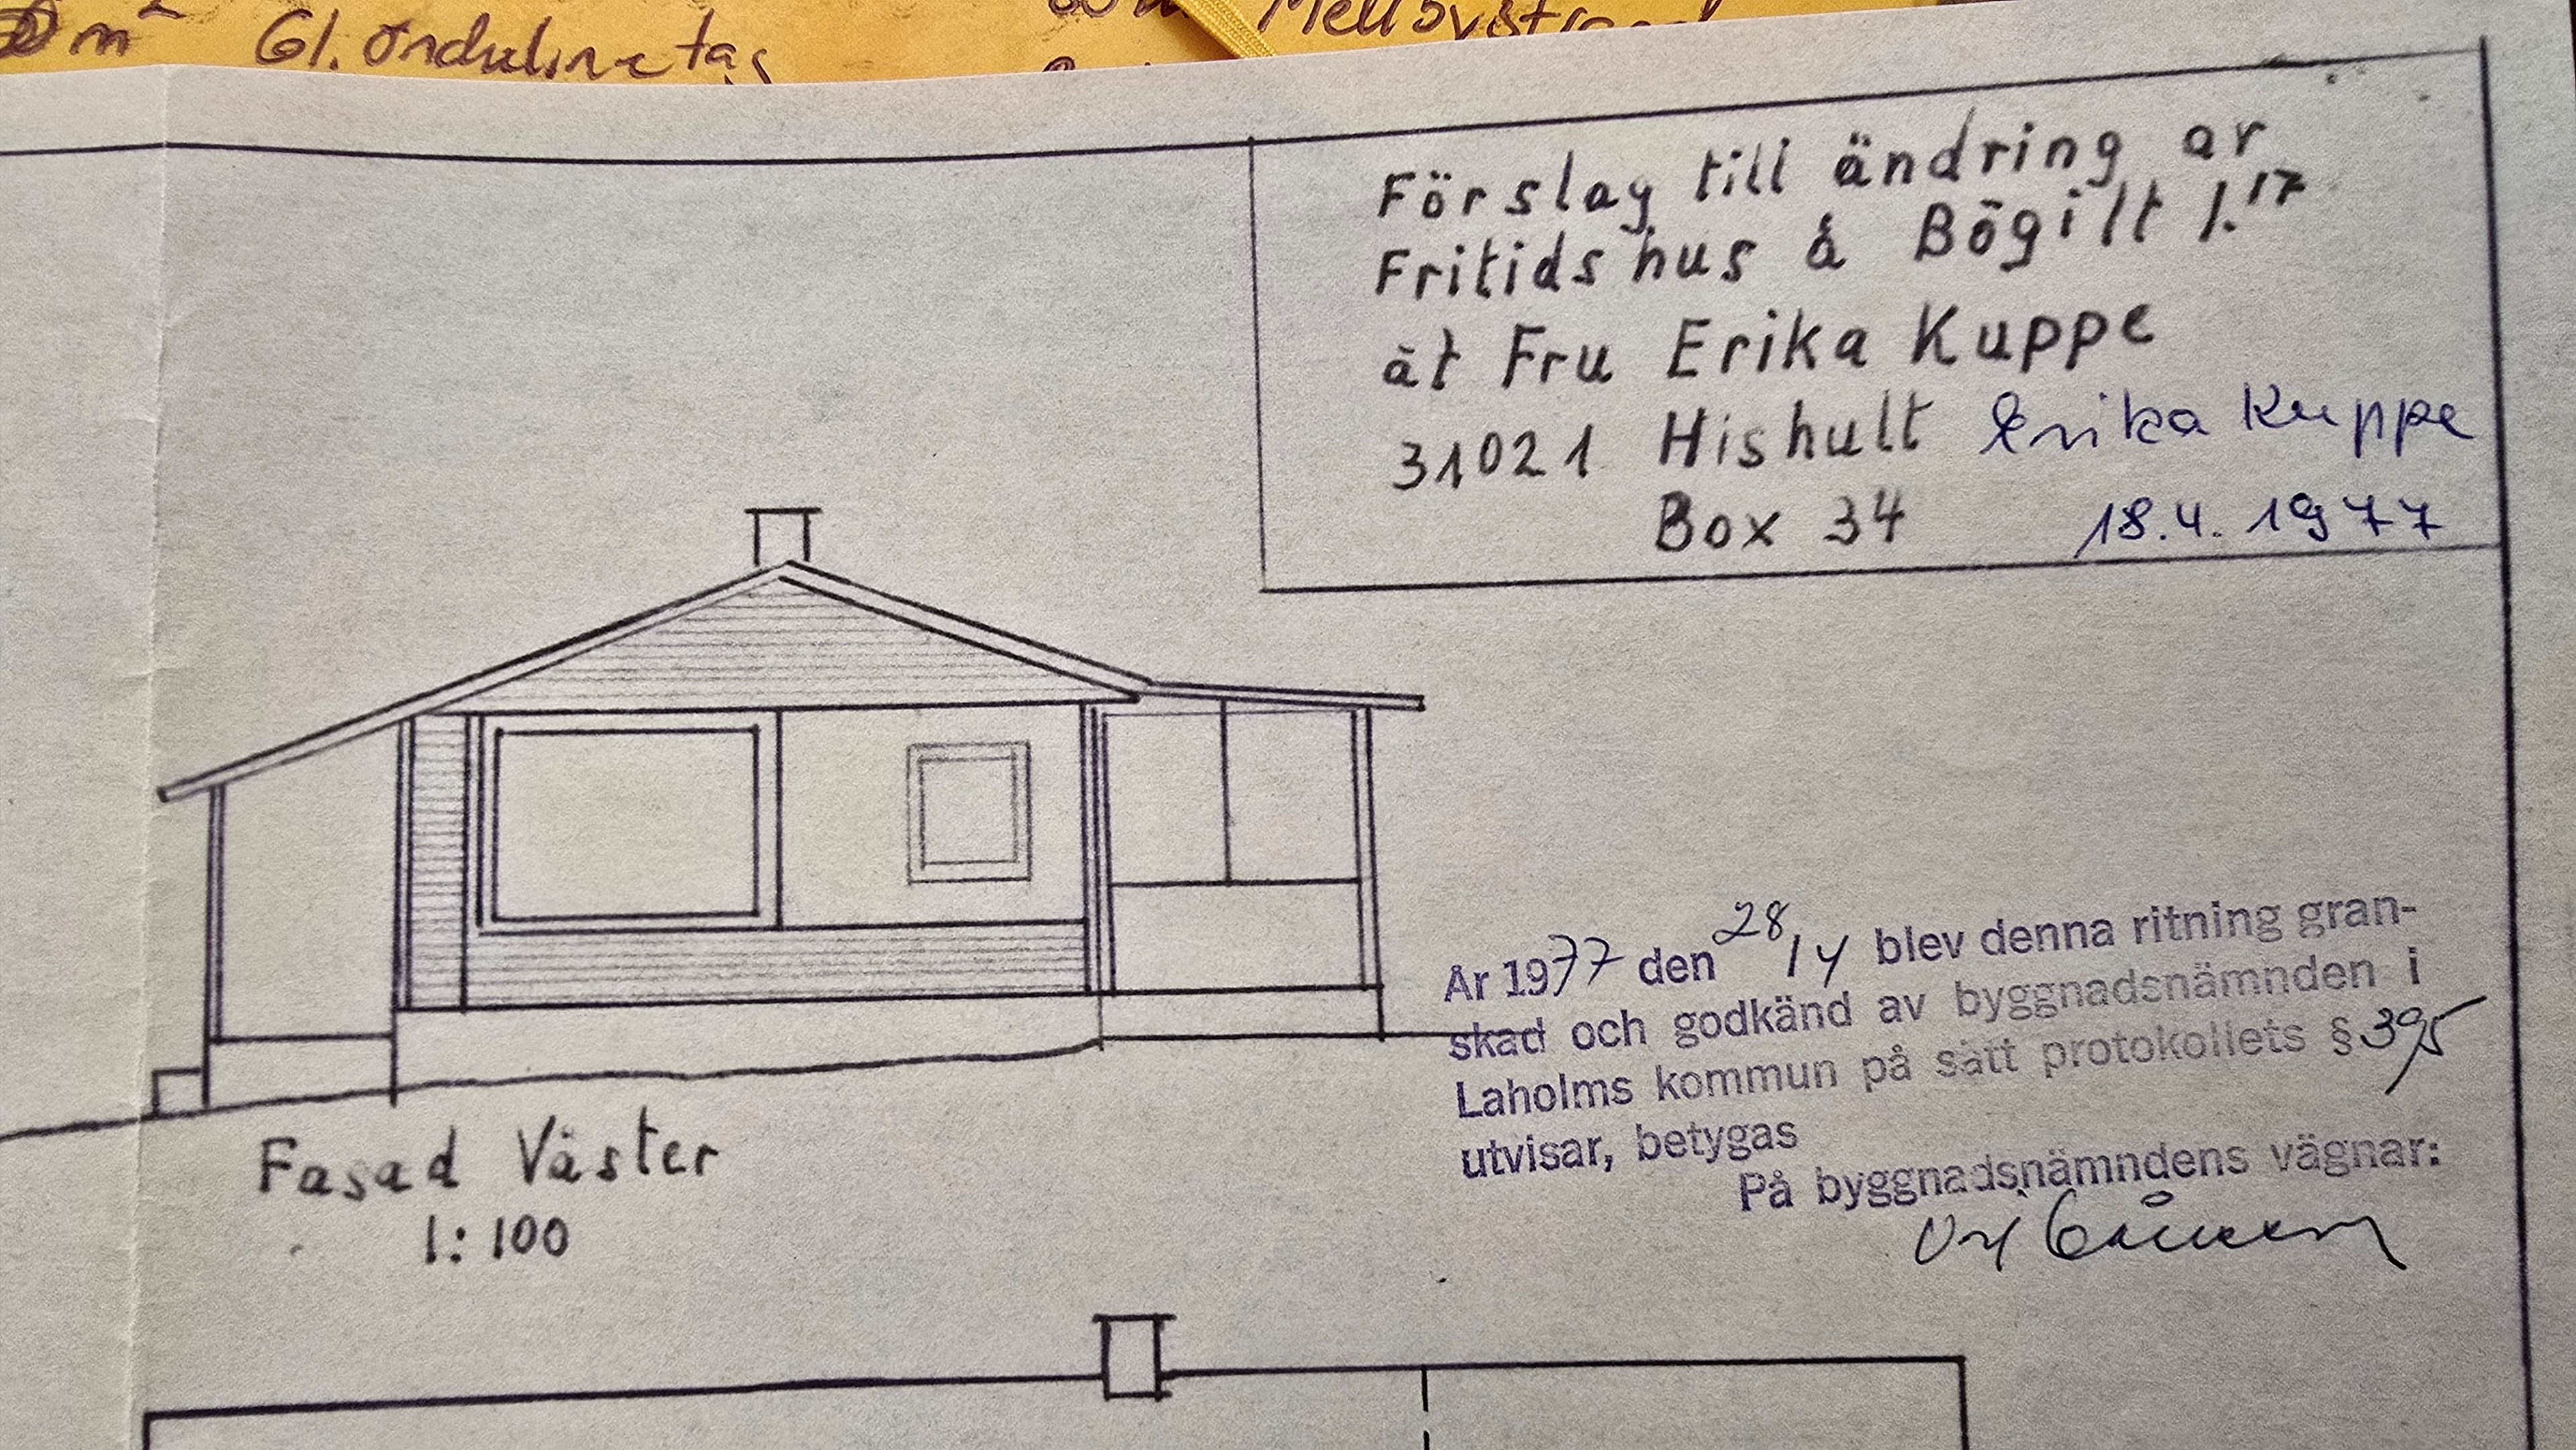 m² Gl. Onduline tag
Mellbystrand
Förslag till ändring av
Fritidshus å Bögilt 1.17
åt Fru Erika Kuppe
31021 Hishult Erika Kuppe
Box 34 18.4.1977
År 1977 den 28/4 blev denna ritning gran-
skad och godkänd av byggnadsnämnden i
Laholms kommun på sätt protokollets § 395
utvisar, betygas
På byggnadsnämndens vägnar:
Fasad Väster
1:100